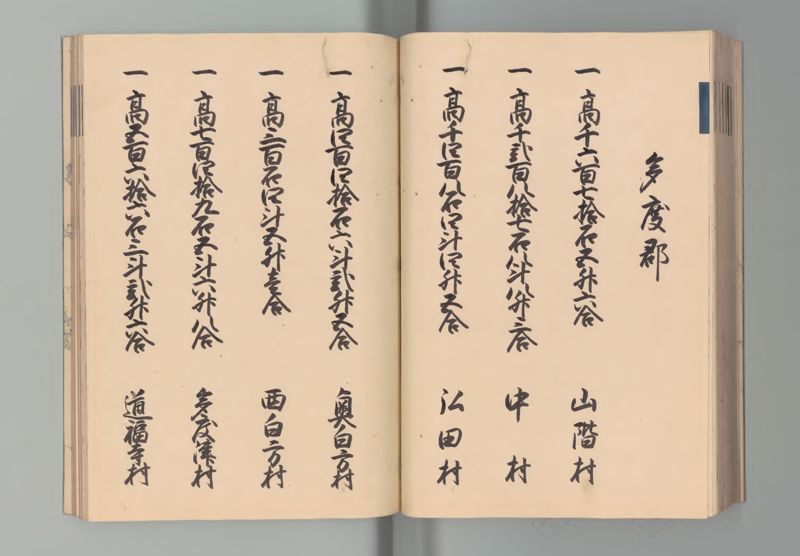 多度郡
一高千六百七拾石五升六合 山階村
一高千弐百八拾七石八斗八升三合 中村
一高千四百八石四斗四升五合 弘田村
一高四百四拾石六斗弐升五合 奥白方村
一高三百石四斗五升壱合 西白方村
一高七百四拾九石五斗六升八合 多度津村
一高五百六拾六石三斗弐升六合 道福寺村